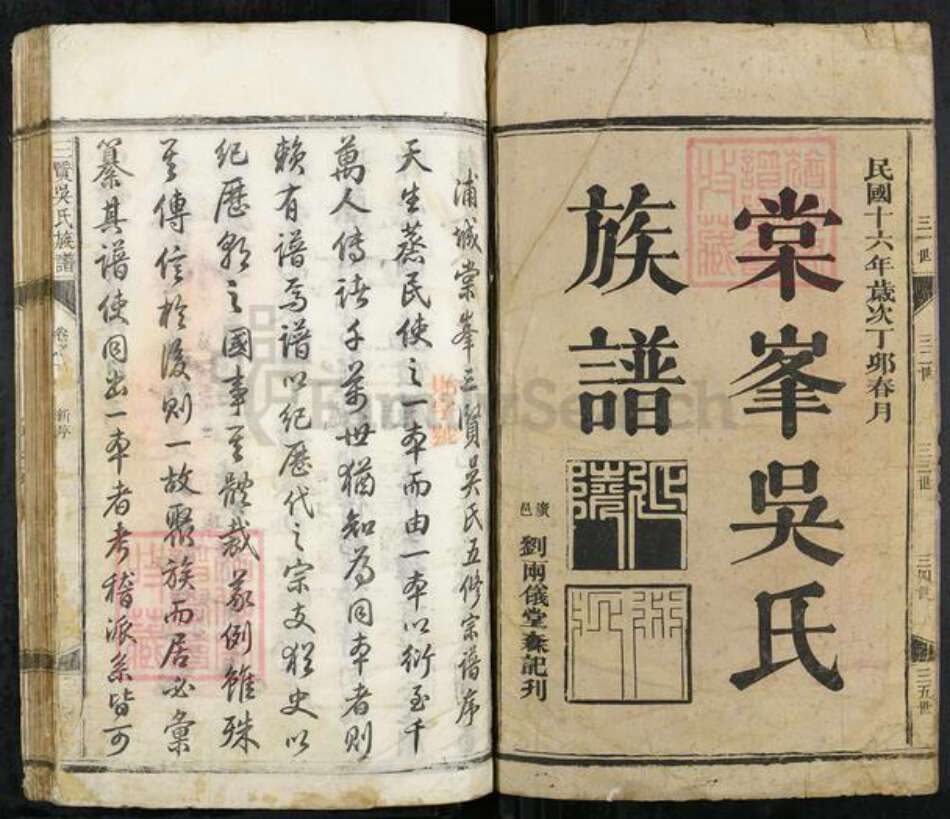 民國十六年歲次丁卯春月
棠峯吳氏
族譜
延陵
邑
劉兩儀堂森記刊
三一世
三二世
三三世
三四世
三五世
浦城棠峯三賢吳氏五修宗譜序
天生蒸民使之一本而由一本以衍至千
萬人傳諸千萬世猶知為同本者則
賴有譜焉譜以紀歷代之宗支猶史以
紀歷朝之國事至體裁義例雖殊
至傳信於後則一故聚族而居必彙
纂其譜使同出一本者考稽派系皆可
三賢吳氏族譜
新序
FamilySearch